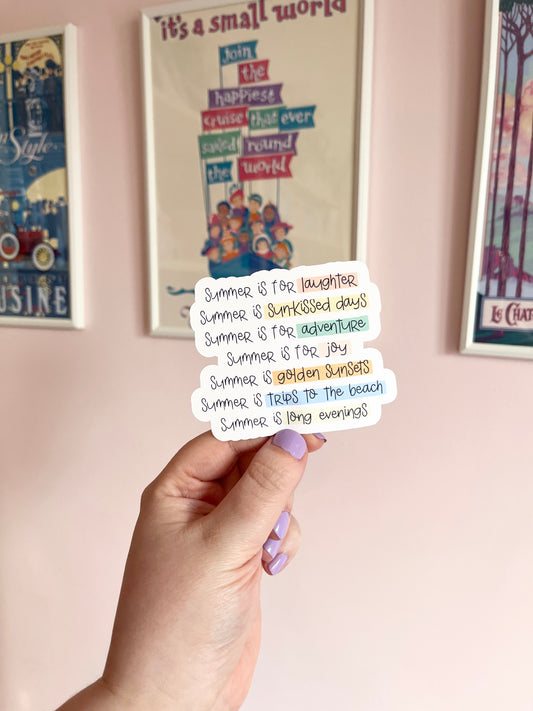 it's a small world
Join
the
happiest
cruise that ever
sailed 'round
the world
Style
USINE
LE CHAT
summer is for laughter
summer is sun-kissed days
summer is for adventure
summer is for joy
summer is golden sunsets
summer is trips to the beach
summer is long evenings